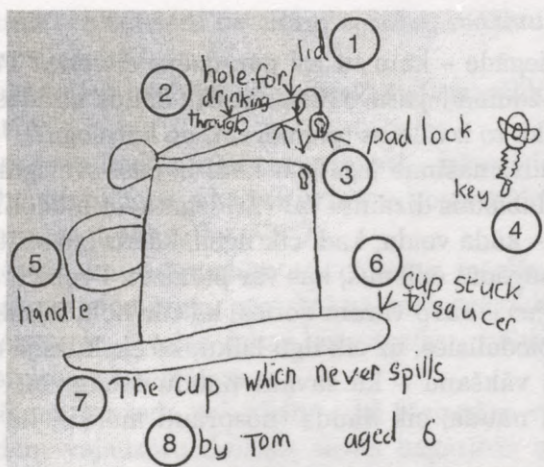 1
lid
2
hole for
drinking
through
padlock
3
key
4
5
handle
6
cup stuck
to saucer
7
The cup which never spills
8
by Tom aged 6